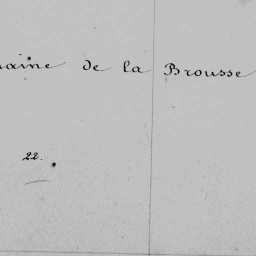 maine de la Brousse
22.